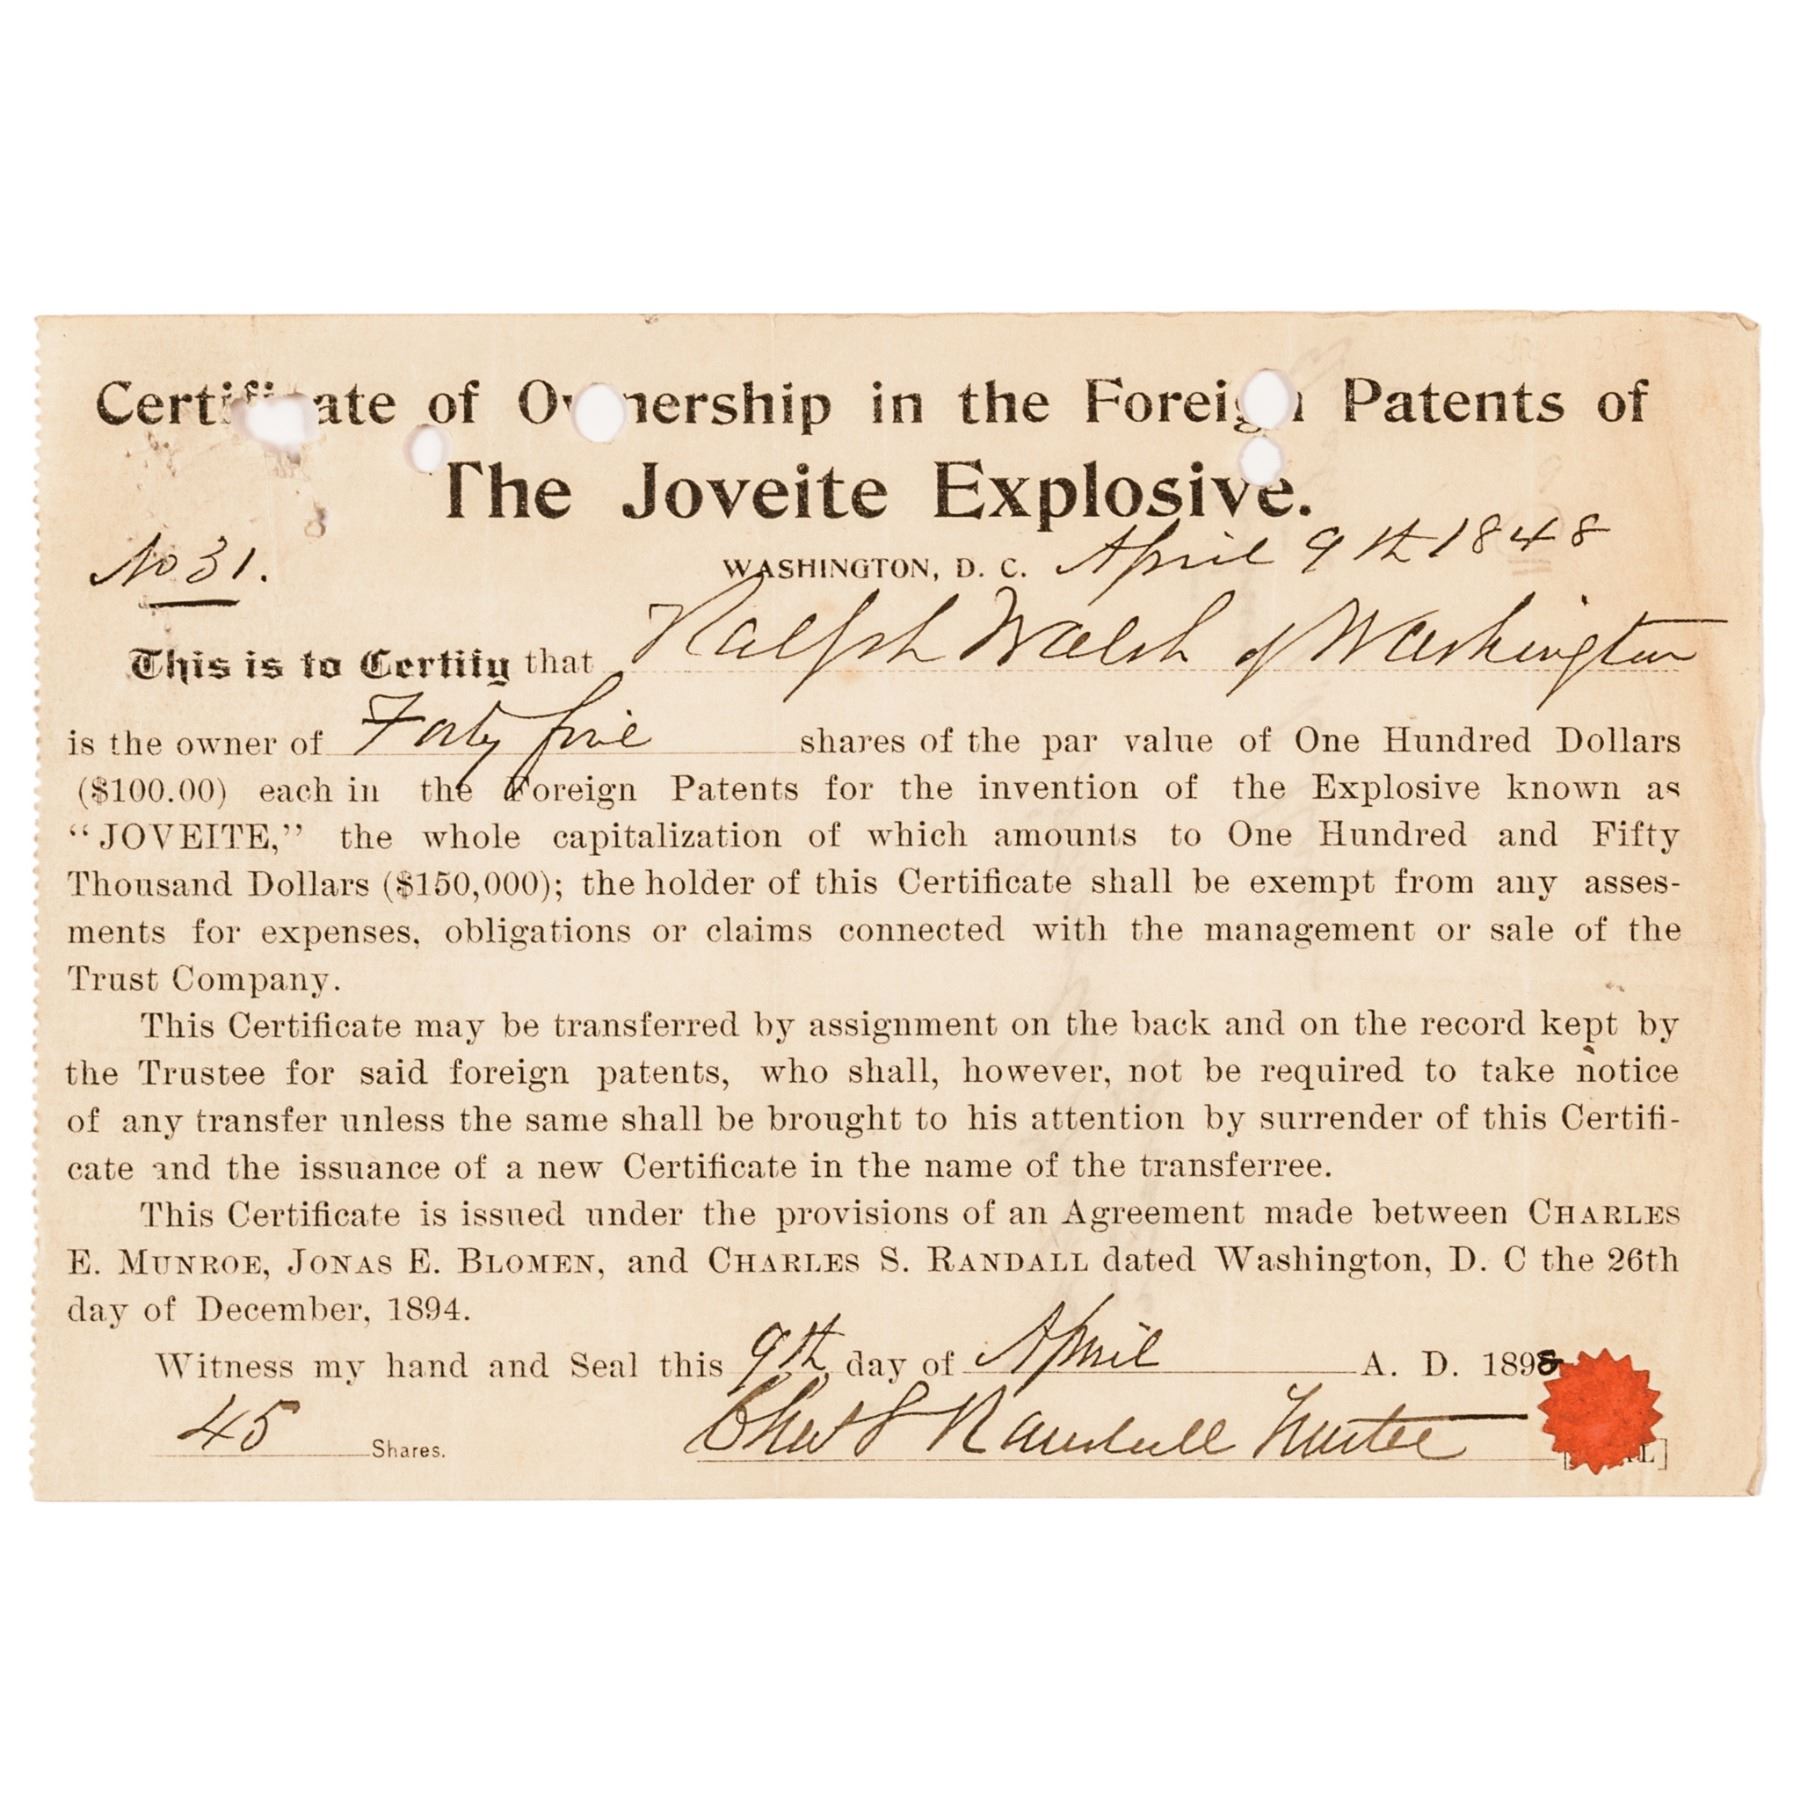 Certificate of Ownership in the Foreign Patents of
The Joveite Explosive.
No 31.
WASHINGTON, D. C. April 9th 1848
This is to Certify that Ralph Walsh of Washington
is the owner of Forty five shares of the par value of One Hundred Dollars
($100.00) each in the Foreign Patents for the invention of the Explosive known as
“JOVEITE,” the whole capitalization of which amounts to One Hundred and Fifty
Thousand Dollars ($150,000); the holder of this Certificate shall be exempt from any asses-
ments for expenses, obligations or claims connected with the management or sale of the
Trust Company.
This Certificate may be transferred by assignment on the back and on the record kept by
the Trustee for said foreign patents, who shall, however, not be required to take notice
of any transfer unless the same shall be brought to his attention by surrender of this Certifi-
cate and the issuance of a new Certificate in the name of the transferree.
This Certificate is issued under the provisions of an Agreement made between CHARLES
E. MUNROE, JONAS E. BLOMEN, and CHARLES S. RANDALL dated Washington, D. C the 26th
day of December, 1894.
Witness my hand and Seal this 9th day of April A. D. 1898
45 Shares. Chas S Randall Trustee [SEAL]